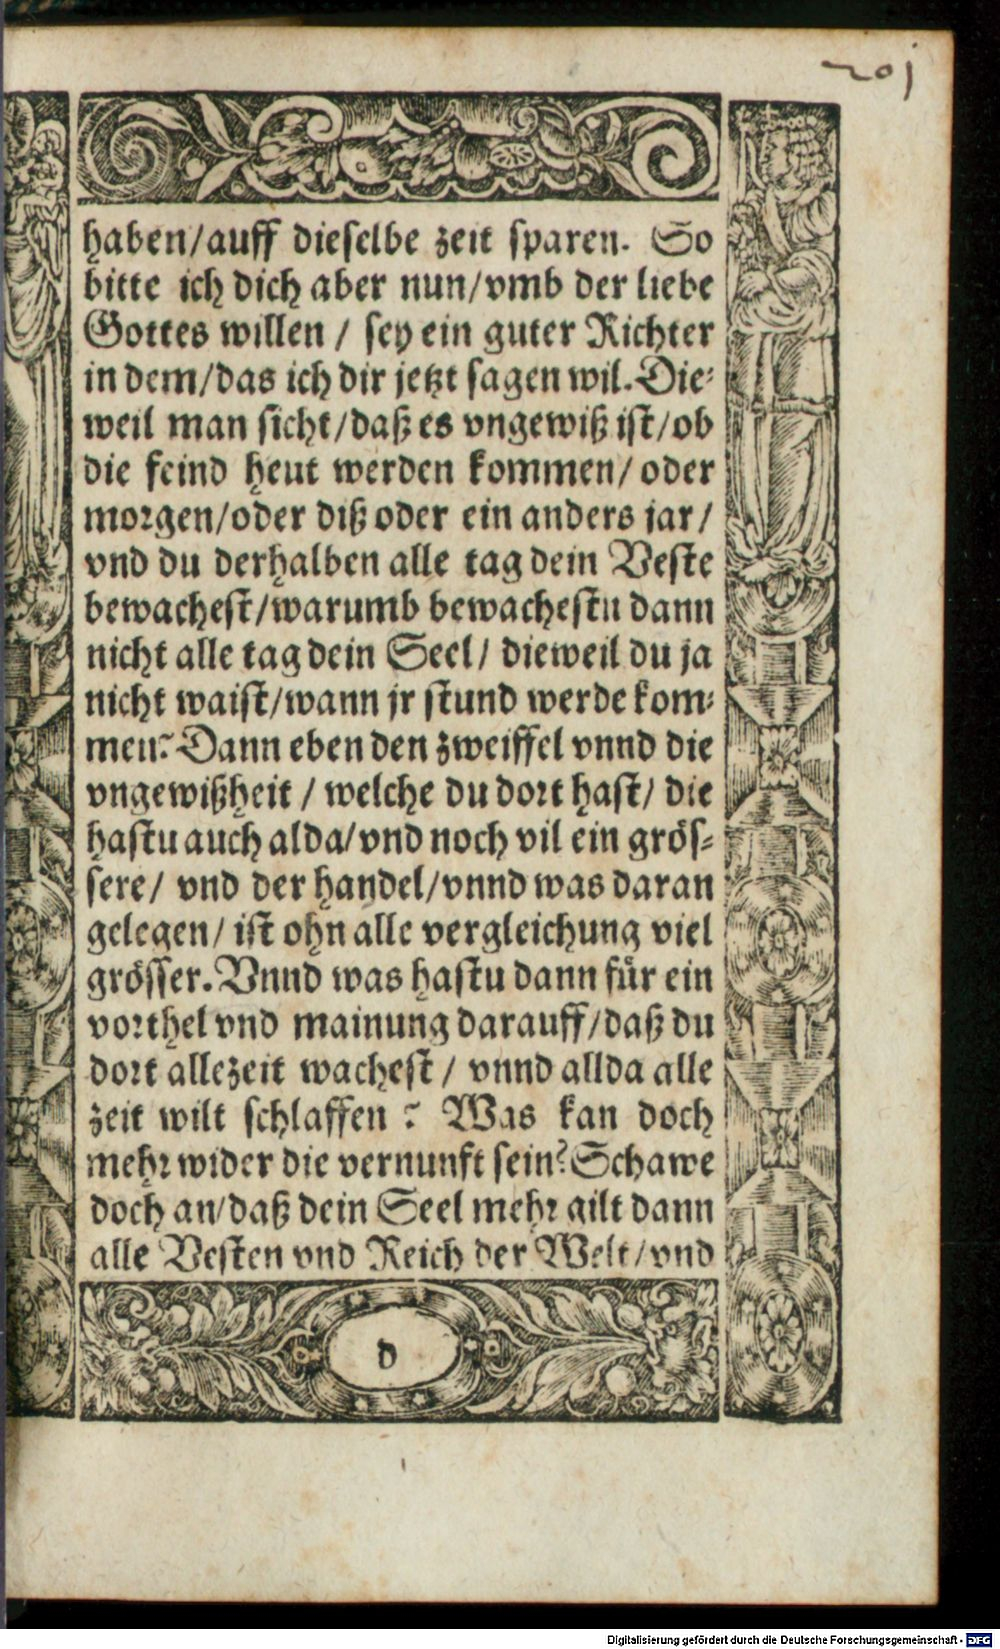 201
haben/auff dieselbe zeit sparen. So
bitte ich dich aber nun/vmb der liebe
Gottes willen / sey ein guter Richter
in dem/das ich dir jetzt sagen wil. Die-
weil man sicht/daß es vngewiß ist/ob
die feind heut werden kommen/ oder
morgen/oder diß oder ein anders jar/
vnd du derhalben alle tag dein Veste
bewachest/warumb bewachestu dann
nicht alle tag dein Seel/ dieweil du ja
nicht waist/wann jr stund werde kom-
men? Dann eben den zweiffel vnnd die
vngewißheit / welche du dort hast/ die
hastu auch alda/vnd noch vil ein grös-
sere/ vnd der handel/vnnd was daran
gelegen/ ist ohn alle vergleichung viel
grösser. Vnnd was hastu dann für ein
vorthel vnd mainung darauff/daß du
dort allezeit wachest / vnnd allda alle
zeit wilt schlaffen ? Was kan doch
mehr wider die vernunft sein? Schawe
doch an/daß dein Seel mehr gilt dann
alle Vesten vnd Reich der Welt/vnd
d
Digitalisierung gefördert durch die Deutsche Forschungsgemeinschaft - DFG